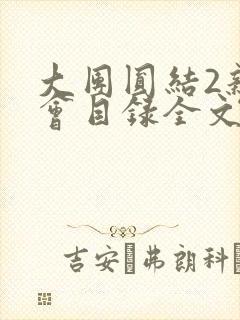 大團圓結2新
會目録全文
吉安·弗朗科·